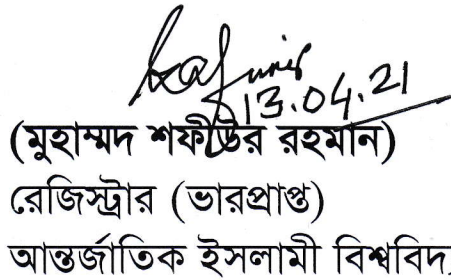 13.04.21
(মুহাম্মদ শফীউর রহমান)
রেজিস্ট্রার (ভারপ্রাপ্ত)
আন্তর্জাতিক ইসলামী বিশ্ববিদ্য